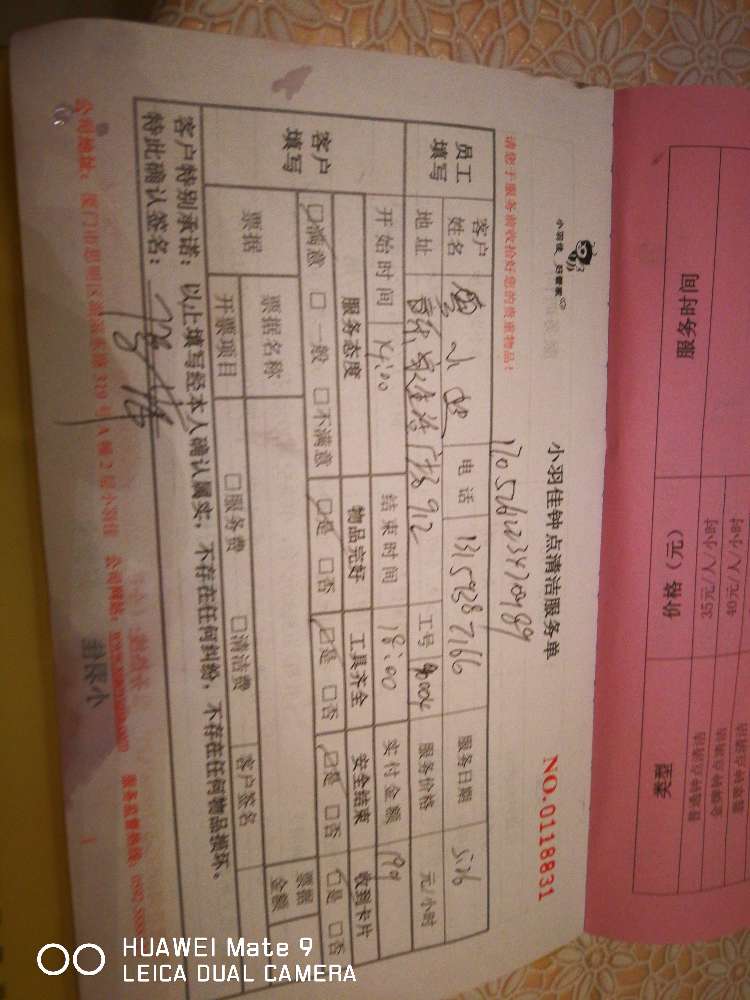 小羽佳钟点清洁服务单
NO.0118831
小羽佳 好管家
请您于服务前收拾好您的贵重物品!
170526123470489
员工填写
客户姓名
小姐
电话
13159287166
服务日期
5.26
地址
912
工号
服务价格
元/小时
开始时间
14:00
结束时间
18:00
实付金额
199
客户填写
服务态度
物品完好
工具齐全
安全结束
收到卡片
☑满意 □一般 □不满意
☑是 □否
☑是 □否
☑是 □否
☑是 □否
票据
票据名称
客户签名
票据金额
开票项目
□服务费
□清洁费
客户特别承诺:以上填写经本人确认属实,不存在任何纠纷,不存在任何物品损坏。
特此确认签名:
公司地址:厦门市思明区
319号A幢2层小羽佳
公司网站:
服务监督热线:0592-
服务时间
价格(元)
类型
35元/人/小时
普通钟点清洁
40元/人/小时
金牌钟点清洁
翡翠钟点清洁
HUAWEI Mate 9
LEICA DUAL CAMERA